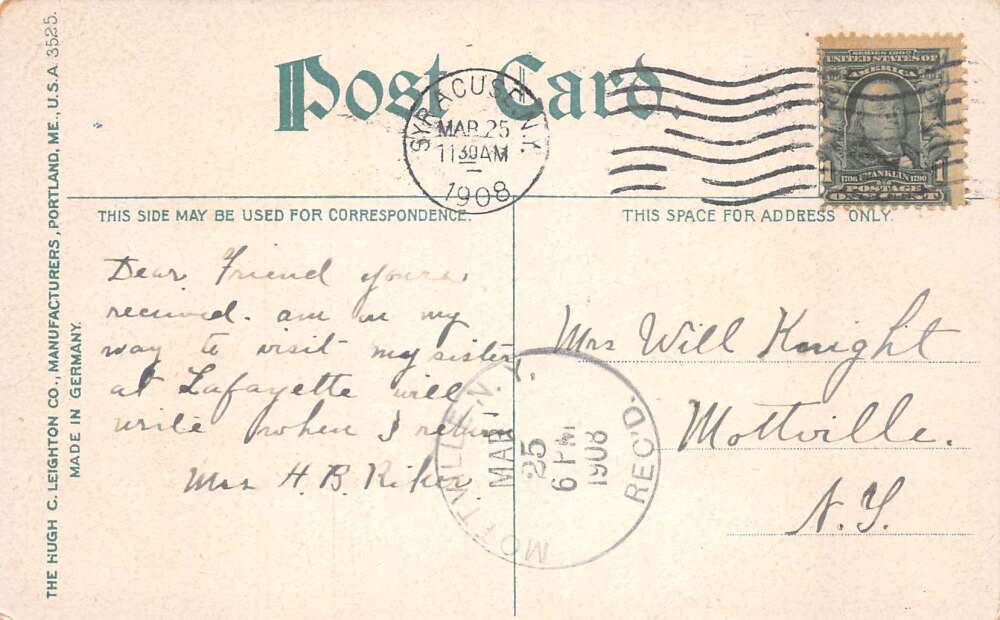 Post Card.
SYRACUSE, N.Y.
MAR 25
11 30 AM
1908
SERIES 1902
UNITED STATES OF
AMERICA
1 1
1706 FRANKLIN 1790
POSTAGE
ONE CENT
THIS SIDE MAY BE USED FOR CORRESPONDENCE.
THIS SPACE FOR ADDRESS ONLY.
Dear Friend yours
received. am on my
way to visit my sister
at Lafayette will
write when I return
Mrs H. B. Riker.
Mrs Will Knight
Mottville.
N.Y.
MOTTVILLE, N.Y.
MAR
25
6 PM
1908
REC'D.
THE HUGH C. LEIGHTON CO., MANUFACTURERS, PORTLAND, ME., U.S.A. 3525.
MADE IN GERMANY.